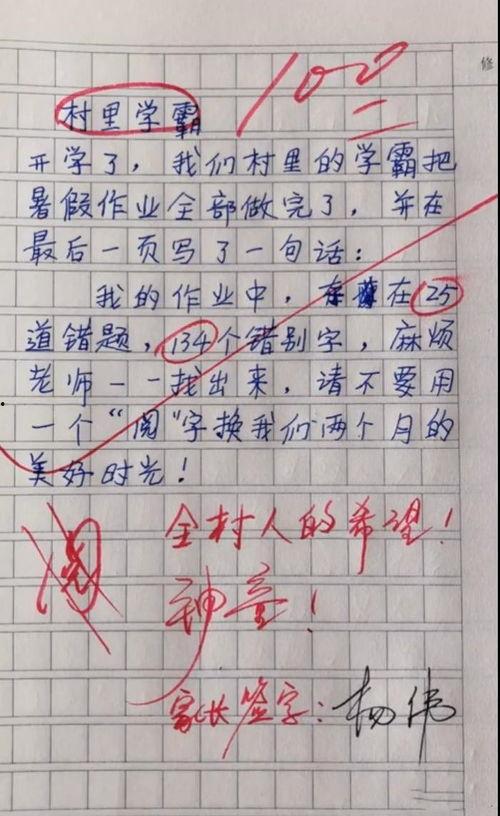 修
100
村里学霸
开学了，我们村里的学霸把
暑假作业全部做完了，并在
最后一页写了一句话：
我的作业中，存在25
道错题，134个错别字，麻烦
老师一一找出来，请不要用
一个“阅”字换我们两个月的
美好时光！
阅
全村人的希望！
神童！
家长签字：杨伟